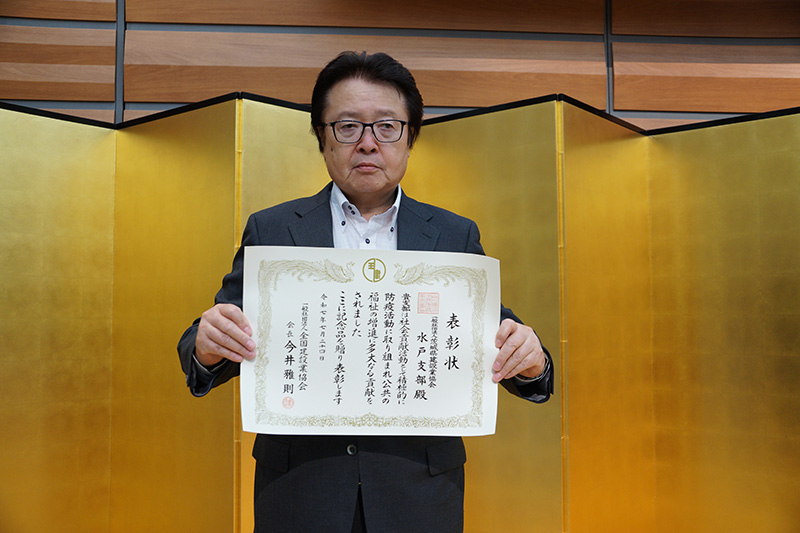 表彰状
一般社団法人茨城県建設業協会
水戸支部殿
貴支部は社会貢献活動として積極的に
防疫活動に取り組まれ公共の
福祉の増進に多大なる貢献を
されました
ここに記念品を贈り表彰します
令和七年七月二十四日
一般社団法人全国建設業協会
会長 今井雅則